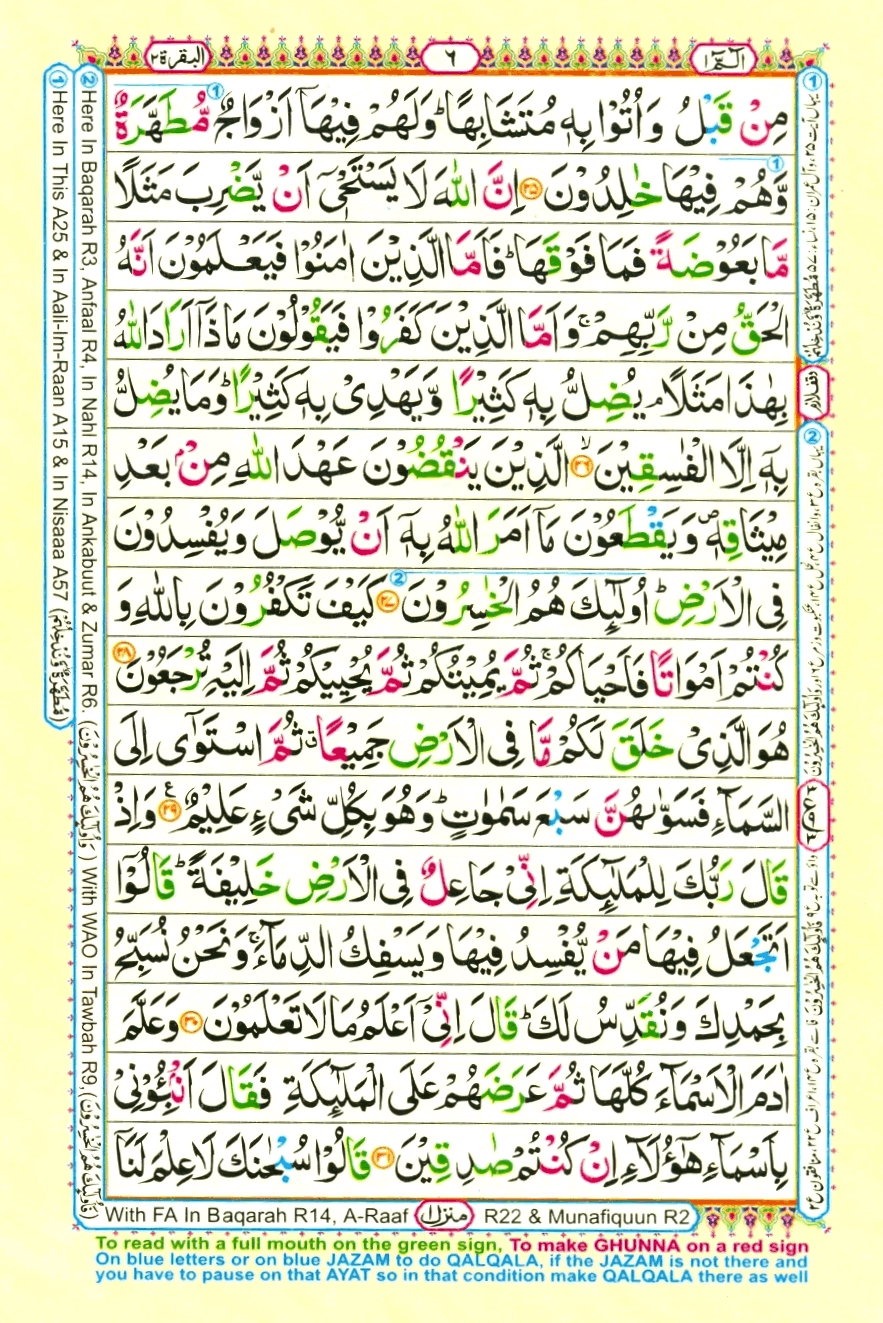 الٓمّٓ ١
٦
البقرة ٢
مِنْ قَبْلُ وَاُتُوْا بِهٖ مُتَشَابِهًا ؕ وَلَهُمْ فِيْهَآ اَزْوَاجٌ مُّطَهَّرَةٌ ۙ
وَّهُمْ فِيْهَا خٰلِدُوْنَ ﴿۲۵﴾ اِنَّ اللّٰهَ لَا يَسْتَحْيٖٓ اَنْ يَّضْرِبَ مَثَلًا
مَّا بَعُوْضَةً فَمَا فَوْقَهَا ؕ فَاَمَّا الَّذِيْنَ اٰمَنُوْا فَيَعْلَمُوْنَ اَنَّهُ
الْحَقُّ مِنْ رَّبِّهِمْ ۚ وَاَمَّا الَّذِيْنَ كَفَرُوْا فَيَقُوْلُوْنَ مَاذَآ اَرَادَ اللّٰهُ
بِهٰذَا مَثَلًا ۘ يُضِلُّ بِهٖ كَثِيْرًا وَّيَهْدِيْ بِهٖ كَثِيْرًا ؕ وَمَا يُضِلُّ
بِهٖٓ اِلَّا الْفٰسِقِيْنَ ﴿۲۶﴾ ۙ الَّذِيْنَ يَنْقُضُوْنَ عَهْدَ اللّٰهِ مِنْۢ بَعْدِ
مِيْثَاقِهٖ ۪ وَيَقْطَعُوْنَ مَآ اَمَرَ اللّٰهُ بِهٖٓ اَنْ يُّوْصَلَ وَيُفْسِدُوْنَ
فِى الْاَرْضِ ؕ اُولٰٓئِكَ هُمُ الْخٰسِرُوْنَ ﴿۲۷﴾ كَيْفَ تَكْفُرُوْنَ بِاللّٰهِ وَ
كُنْتُمْ اَمْوَاتًا فَاَحْيَاكُمْ ۚ ثُمَّ يُمِيْتُكُمْ ثُمَّ يُحْيِيْكُمْ ثُمَّ اِلَيْهِ تُرْجَعُوْنَ ﴿۲۸﴾
هُوَ الَّذِيْ خَلَقَ لَكُمْ مَّا فِى الْاَرْضِ جَمِيْعًا ۗ ثُمَّ اسْتَوٰٓى اِلَى
السَّمَآءِ فَسَوّٰىهُنَّ سَبْعَ سَمٰوٰتٍ ؕ وَهُوَ بِكُلِّ شَيْءٍ عَلِيْمٌ ﴿۲۹﴾ وَاِذْ
قَالَ رَبُّكَ لِلْمَلٰٓئِكَةِ اِنِّيْ جَاعِلٌ فِى الْاَرْضِ خَلِيْفَةً ؕ قَالُوْٓا
اَتَجْعَلُ فِيْهَا مَنْ يُّفْسِدُ فِيْهَا وَيَسْفِكُ الدِّمَآءَ ۚ وَنَحْنُ نُسَبِّحُ
بِحَمْدِكَ وَنُقَدِّسُ لَكَ ؕ قَالَ اِنِّيْٓ اَعْلَمُ مَا لَا تَعْلَمُوْنَ ﴿۳۰﴾ وَعَلَّمَ
اٰدَمَ الْاَسْمَآءَ كُلَّهَا ثُمَّ عَرَضَهُمْ عَلَى الْمَلٰٓئِكَةِ فَقَالَ اَنْۢبِـُٔوْنِيْ
بِاَسْمَآءِ هٰٓؤُلَآءِ اِنْ كُنْتُمْ صٰدِقِيْنَ ﴿۳۱﴾ قَالُوْا سُبْحٰنَكَ لَا عِلْمَ لَنَآ
① Here In This A25 & In Aali-Im-Raan A15 & In Nisaaa A57
② Here In Baqarah R3, Anfaal R4, In Nahl R14, In Ankabuut & Zumar R6. (وَاُولٰٓئِكَ هُمُ الْخٰسِرُوْنَ) With WAO In Tawbah R9, (فَاُولٰٓئِكَ هُمُ الْخٰسِرُوْنَ)
With FA In Baqarah R14, A-Raaf منزل ١ R22 & Munafiquun R2
To read with a full mouth on the green sign, To make GHUNNA on a red sign
On blue letters or on blue JAZAM to do QALQALA, if the JAZAM is not there and
you have to pause on that AYAT so in that condition make QALQALA there as well